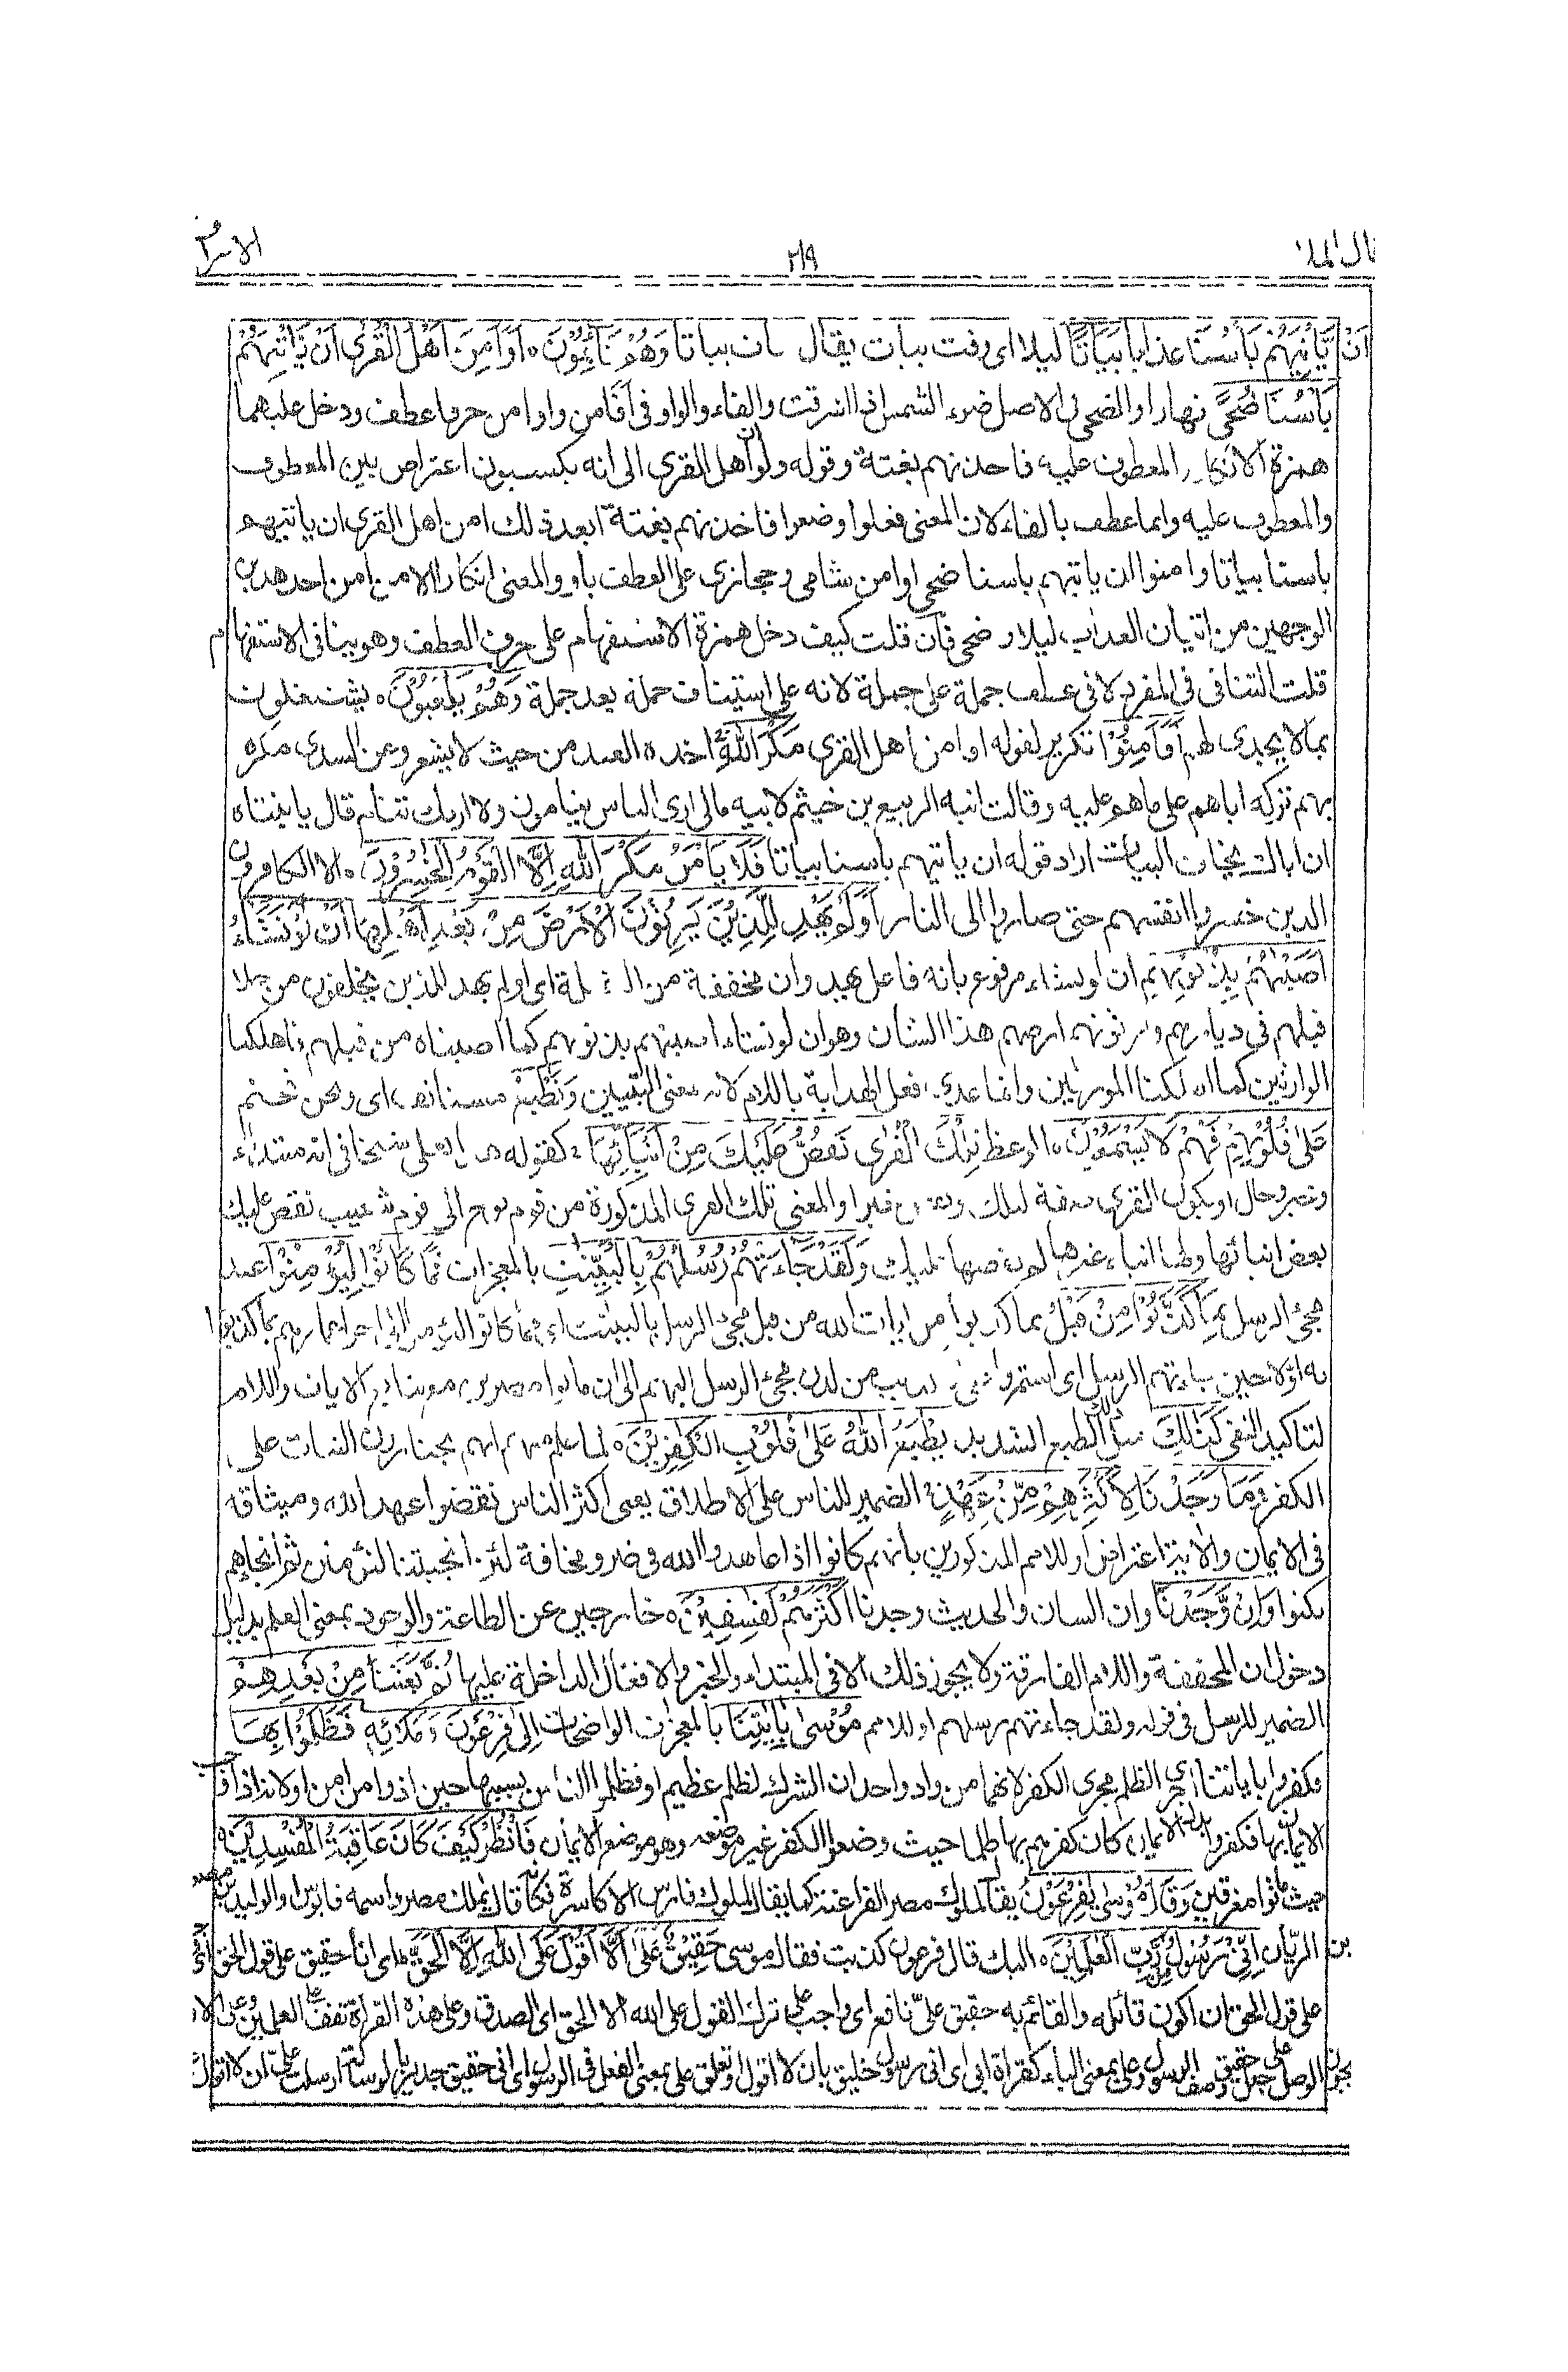 قال الملا ٢١٩ الاعراف
اَنْ يَّاْتِيَهُمْ بَاْسُنَا عذابنا بَيَاتًا ليلا اى وقت بيات يقال بات بياتا وَّهُمْ نَآئِمُوْنَ ٥ اَوَاَمِنَ اَهْلُ الْقُرٰٓى اَنْ يَّاْتِيَهُمْ
بَاْسُنَا ضُحًى نهارا والضحى فى الاصل ضوء الشمس اذا اشرقت والفاء والواو فى افامن واوامن حرفا عطف ودخل عليهما
همزة الانكار المعطوف عليه فاخذنهم بغتة وقوله ولو ان اهل القرى الى انه يكسبون اعتراض بين المعطوف
والمعطوف عليه وانما عطف بالفاء لان المعنى فعلوا وضعوا فاخذنهم بغتة ابعد ذلك امن اهل القرى ان ياتيهم
باسنا بياتا وامنوا ان ياتيهم باسنا ضحى اوامن شامى وحجازى على العطف باو والمعنى انكار الامن من احد هذين
الوجهين من اتيان العذاب ليلا و ضحى فان قلت كيف دخل همزة الاستفهام على حرف العطف وهو ينافى الاستفهام
قلت التنافى فى المفرد لا فى عطف جملة على جملة لانه على استيناف جملة بعد جملة وَّهُمْ يَلْعَبُوْنَ ٥ يشتغلون
بمالا يجدى لهم اَفَاَمِنُوْا تكرير لقوله اوامن اهل القرى مَكْرَ اللّٰهِ اخذه العبد من حيث لا يشعر وعن السدى مكره
بهم تركه اياهم على ما هم عليه وقالت ابنة الربيع بن خيثم لابيه مالى ارى الناس ينامون ولا اريك تنام قال يا بنتاه
ان اباك يخاف البيات اراد قوله ان ياتيهم باسنا بياتا فَلَا يَاْمَنُ مَكْرَ اللّٰهِ اِلَّا الْقَوْمُ الْخٰسِرُوْنَ ٥ الا الكافرون
الذين خسروا انفسهم حتى صاروا الى النار اَوَلَمْ يَهْدِ لِلَّذِيْنَ يَرِثُوْنَ الْاَرْضَ مِنْۢ بَعْدِ اَهْلِهَآ اَنْ لَّوْ نَشَآءُ
اَصَبْنٰهُمْ بِذُنُوْبِهِمْ ان لو نشاء مرفوع بانه فاعل يهد وان مخففة من الثقيلة اى اولم يهد للذين يخلفون من خلا
قبلهم فى ديارهم ويرثونهم ارضهم هذا الشان وهو ان لو نشاء اصبنهم بذنوبهم كما اصبناه من قبلهم فاهلكنا
الوارثين كما اهلكنا الموروثين وانما عدى فعل الهداية باللام لانه بمعنى التبيين وَنَطْبَعُ مستانف اى ونحن نختم
عَلٰى قُلُوْبِهِمْ فَهُمْ لَا يَسْمَعُوْنَ ٥ الوعظ تِلْكَ الْقُرٰى نَقُصُّ عَلَيْكَ مِنْ اَنْۢبَآئِهَا كقوله هذا بعلى شيخا فى انه مبتداء
وخبر وحال او يكون القرى صفة لتلك ونقص خبرا والمعنى تلك القرى المذكورة من قوم نوح الى قوم شعيب نقص عليك
بعض انبائها ولها انباء غيرها لم نقصها عليك وَلَقَدْ جَآءَتْهُمْ رُسُلُهُمْ بِالْبَيِّنٰتِ بالمعجزات فَمَا كَانُوْا لِيُؤْمِنُوْا عند
مجئ الرسل بِمَا كَذَّبُوْا مِنْ قَبْلُ بما كذبوا من ايات الله من قبل مجئ الرسل بالبينت
به اولا حين جاءتهم الرسل اى استمروا من لدن مجئ الرسل اليهم الى ان ماتوا الايات واللام
لتاكيد النفى كَذٰلِكَ مثل ذلك الطبع الشديد يَطْبَعُ اللّٰهُ عَلٰى قُلُوْبِ الْكٰفِرِيْنَ ٥ لما علم منهم انهم يختارون الثبات على
الكفر وَمَا وَجَدْنَا لِاَكْثَرِهِمْ مِّنْ عَهْدٍ الضمير للناس على الاطلاق يعنى اكثر الناس نقضوا عهد الله وميثاقه
فى الايمان والاية اعتراض او للامم المذكورين بانهم كانوا اذا عاهدوا الله فى ضر ومخافة لئن انجيتنا لنؤمنن ثم انجاهم
نكثوا وَاِنْ وَّجَدْنَآ وان الشان والحديث وجدنا اَكْثَرَهُمْ لَفٰسِقِيْنَ ٥ خارجين عن الطاعة والوجود بمعنى العلم بدليل
دخول ان المخففة واللام الفارقة ولا يجوز ذلك الا فى المبتداء والخبر والافعال الداخلة عليها ثُمَّ بَعَثْنَا مِنْۢ بَعْدِهِمْ
الضمير للرسل فى قوله ولقد جاءتهم رسلهم او للامم مُّوْسٰى بِاٰيٰتِنَآ بالمعجزات الواضحات اِلٰى فِرْعَوْنَ وَمَلَا۟ئِهٖ فَظَلَمُوْا بِهَا
فكفروا باياتنا اجرى الظلم مجرى الكفر لانهما من واد واحد ان الشرك لظلم عظيم او فظلموا الناس بسببها حين اذوا من امن اولانه اذا وجب
الايمان بها فكفروا بدل الايمان كان كفرهم بها ظلما حيث وضعوا الكفر غير موضعه وهو موضع الايمان فَانْظُرْ كَيْفَ كَانَ عَاقِبَةُ الْمُفْسِدِيْنَ ٥
حيث صاروا مغرقين وَقَالَ مُوْسٰى يٰفِرْعَوْنُ يقال لملوك مصر الفراعنة كما يقال لملوك فارس الاكاسرة فكانه قال يا ملك مصر واسمه قابوس او الوليد بن مصعب
بن الريان اِنِّيْ رَسُوْلٌ مِّنْ رَّبِّ الْعٰلَمِيْنَ ٥ اليك قال فرعون كذبت فقال موسى حَقِيْقٌ عَلٰٓى اَنْ لَّآ اَقُوْلَ عَلَى اللّٰهِ اِلَّا الْحَقَّ اى انا حقيق على قول الحق
على قول الحق ان اكون قائله والقائم به حقيق علىّ نافع اى واجب على ترك القول على الله الا الحق اى الصدق وعلى هذه القراءة تقف على العلمين وعلى الاول
يجوز الوصل على جعل حقيق وصف الرسول وعلى بمعنى الباء كقراءة ابى اى انى رسول خليق بان لا اقول او تعلق على بمعنى الفعل فى الرسول اى انى حقيق جدير بالرسالة ارسلت على ان لا اقول